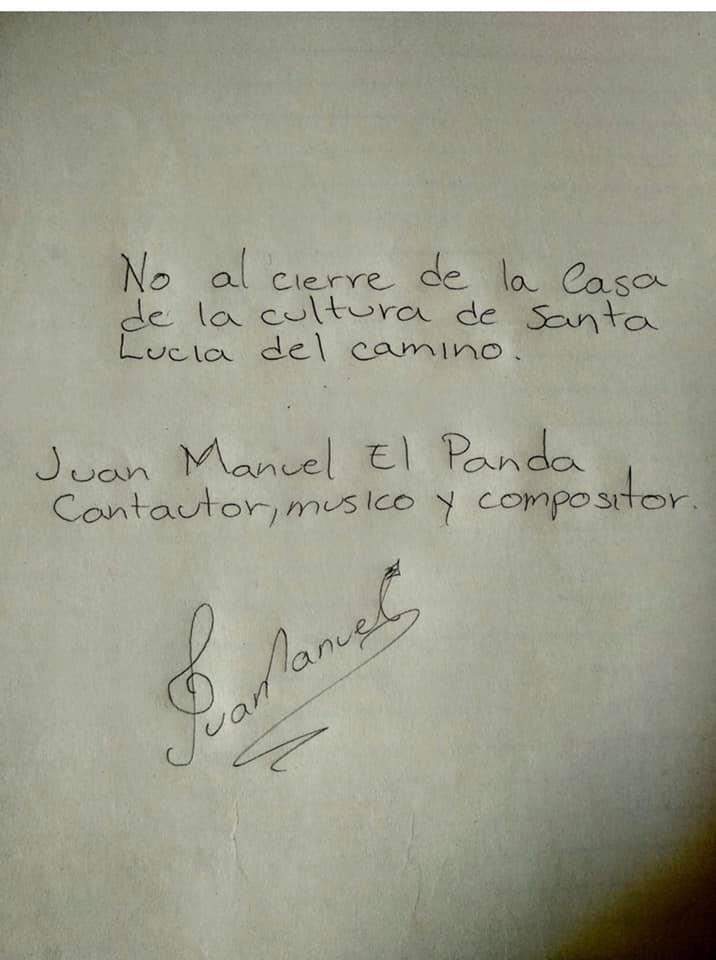 No al cierre de la Casa
de la cultura de Santa
Lucia del camino.
Juan Manuel El Panda
Cantautor, musico y compositor.
Juan Manuel